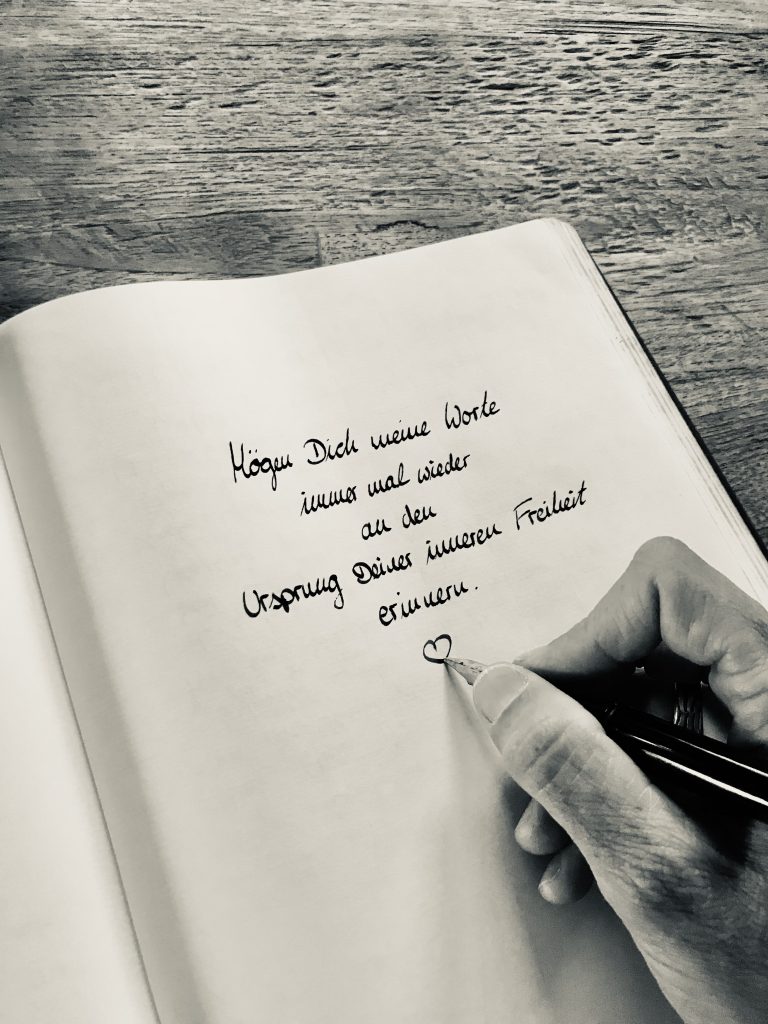 Mögen Dich meine Worte
immer mal wieder
an den
Ursprung Deiner inneren Freiheit
erinnern.